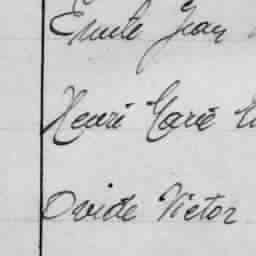 Emile Jean
Henri Marie
Ovide Victor